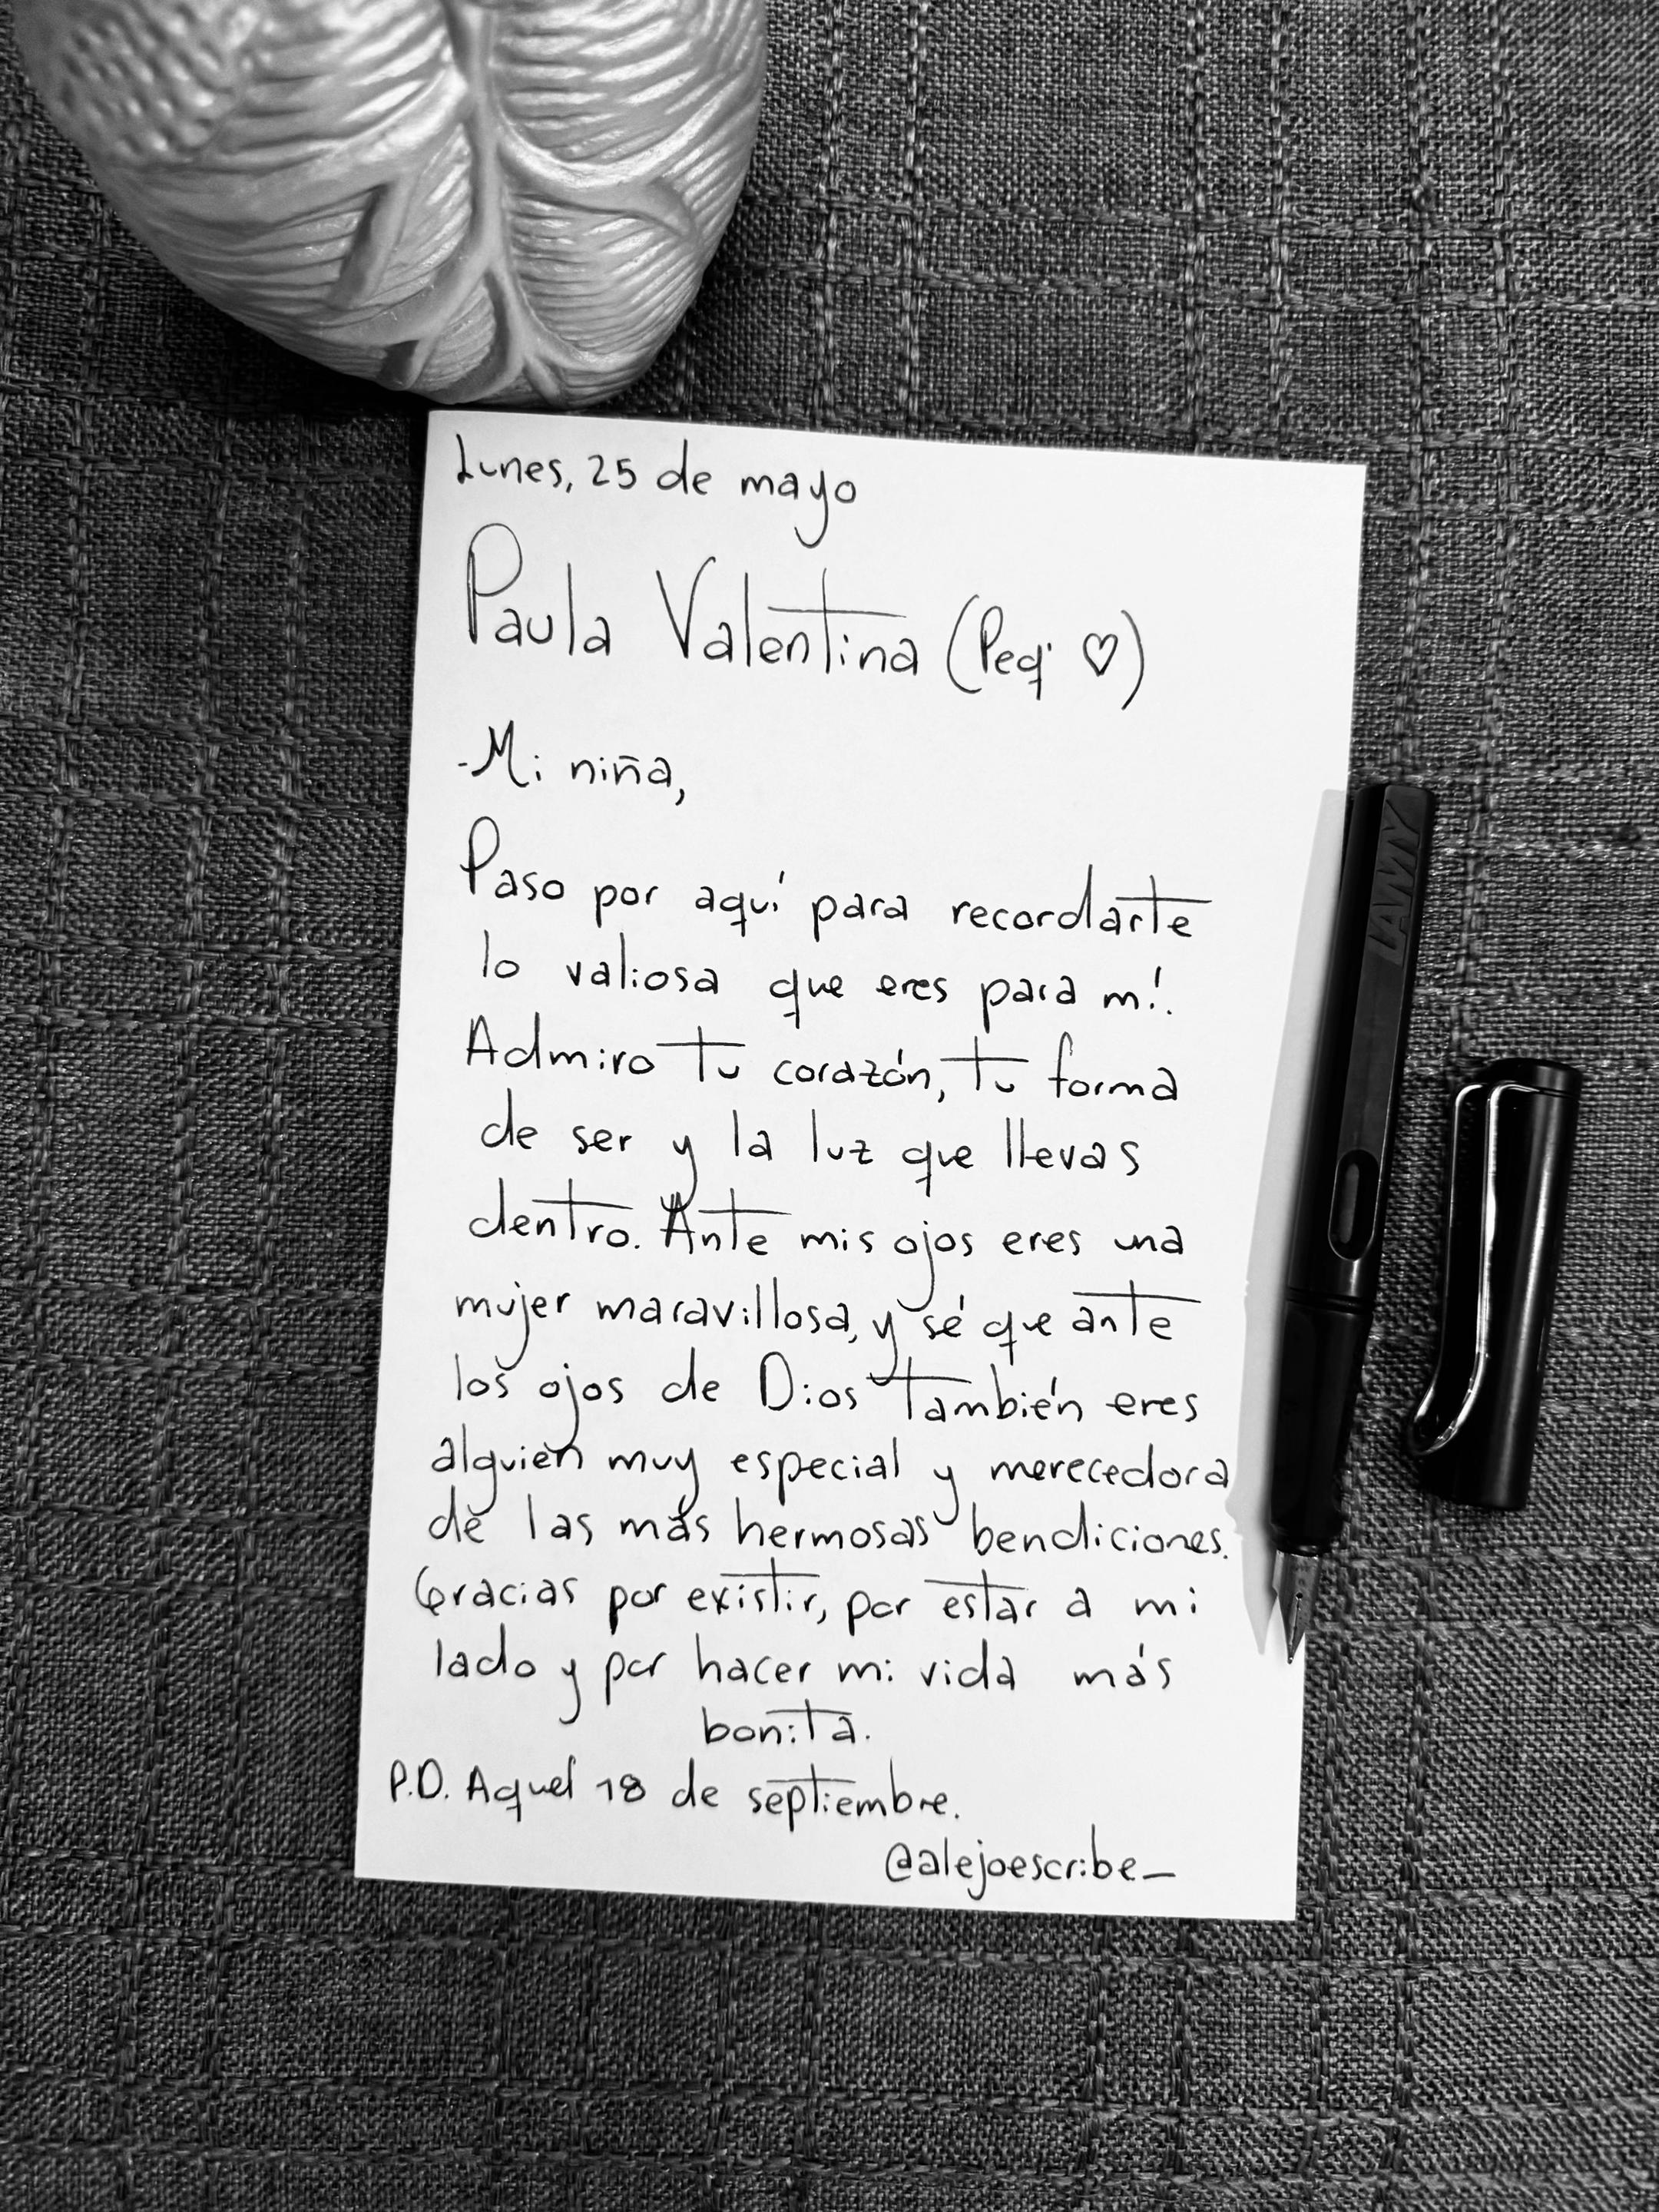 Lunes, 25 de mayo
Paula Valentina (Peq' ♡)
-Mi niña,
Paso por aquí para recordarte
lo valiosa que eres para mí.
Admiro tu corazón, tu forma
de ser y la luz que llevas
dentro. Ante mis ojos eres una
mujer maravillosa, y sé que ante
los ojos de Dios también eres
alguien muy especial y merecedora
de las más hermosas bendiciones.
Gracias por existir, por estar a mi
lado y por hacer mi vida más
bonita.
P.D. Aquel 18 de septiembre.
@alejoescribe_
LAMY